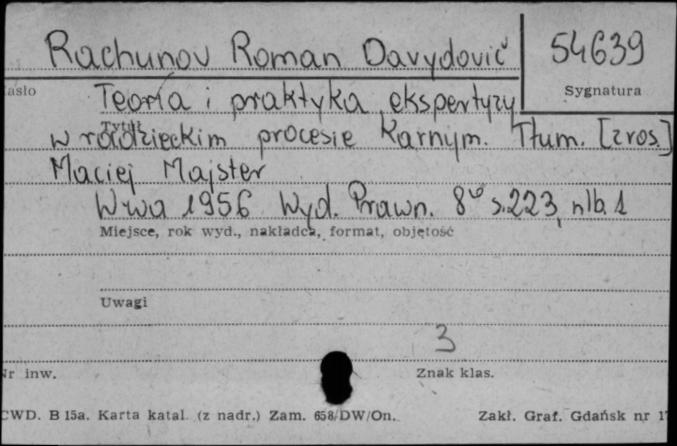 Rachunov Roman Davydovič 54639
asło Sygnatura
Teoria i praktyka ekspertyzy
Tytuł
w radzieckim procesie karnym. Tłum. [z ros.]
Maciej Majster
W-wa 1956 Wyd. Prawn. 8° s. 223, nlb. 1
Miejsce, rok wyd., nakładca, format, objętość
Uwagi
3
Nr inw. Znak klas.
CWD. B 15a. Karta katal. (z nadr.) Zam. 658/DW/On. Zakł. Graf. Gdańsk nr 1